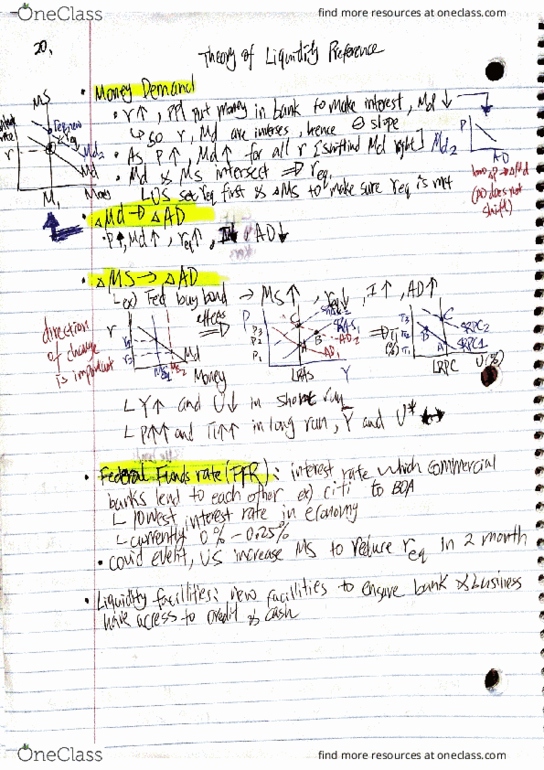 OneClass
find more resources at oneclass.com
20.
Theory of Liquidity Preference
• Money Demand
• r↑, ppl put money in bank to make interest, Md ↓
↳ so r, Md are inverses, hence ⊖ slope
• As P↑, Md↑ for all r [shift Md right]
• Md & MS intersect ⇒ req
↳ US set req first & ΔMS to make sure req is met
MS
r
Md2
Md
Money
M1
P
AD
Md2
(AD does not
shift)
• ΔMd → ΔAD
• P↑, Md↑, req↑, I↓, AD↓
• ΔMS → ΔAD
↳ ex) Fed buy bond → MS↑, req↓, I↑, AD↑
direction
of change
is important
r
Md
MS1 MS2
Money
effects
⇒
P
P3
P2
P1
C
B
A
AD2
AD1
LRAS
Y
⇒
(%)
C
B
A
SRPC2
SRPC1
LRPC
U(%)
↳ Y↑ and U↓ in short run
↳ P↑↑ and π↑↑ in long run, Y and U* ↔
• Federal Funds rate (FFR): interest rate which commercial
banks lend to each other ex) citi to BOA
↳ lowest interest rate in economy
↳ currently 0% - 0.25%
• covid event, US increase MS to reduce req in 2 month
• Liquidity facilities: new facilities to ensure bank & business
have access to credit & cash
OneClass
find more resources at oneclass.com